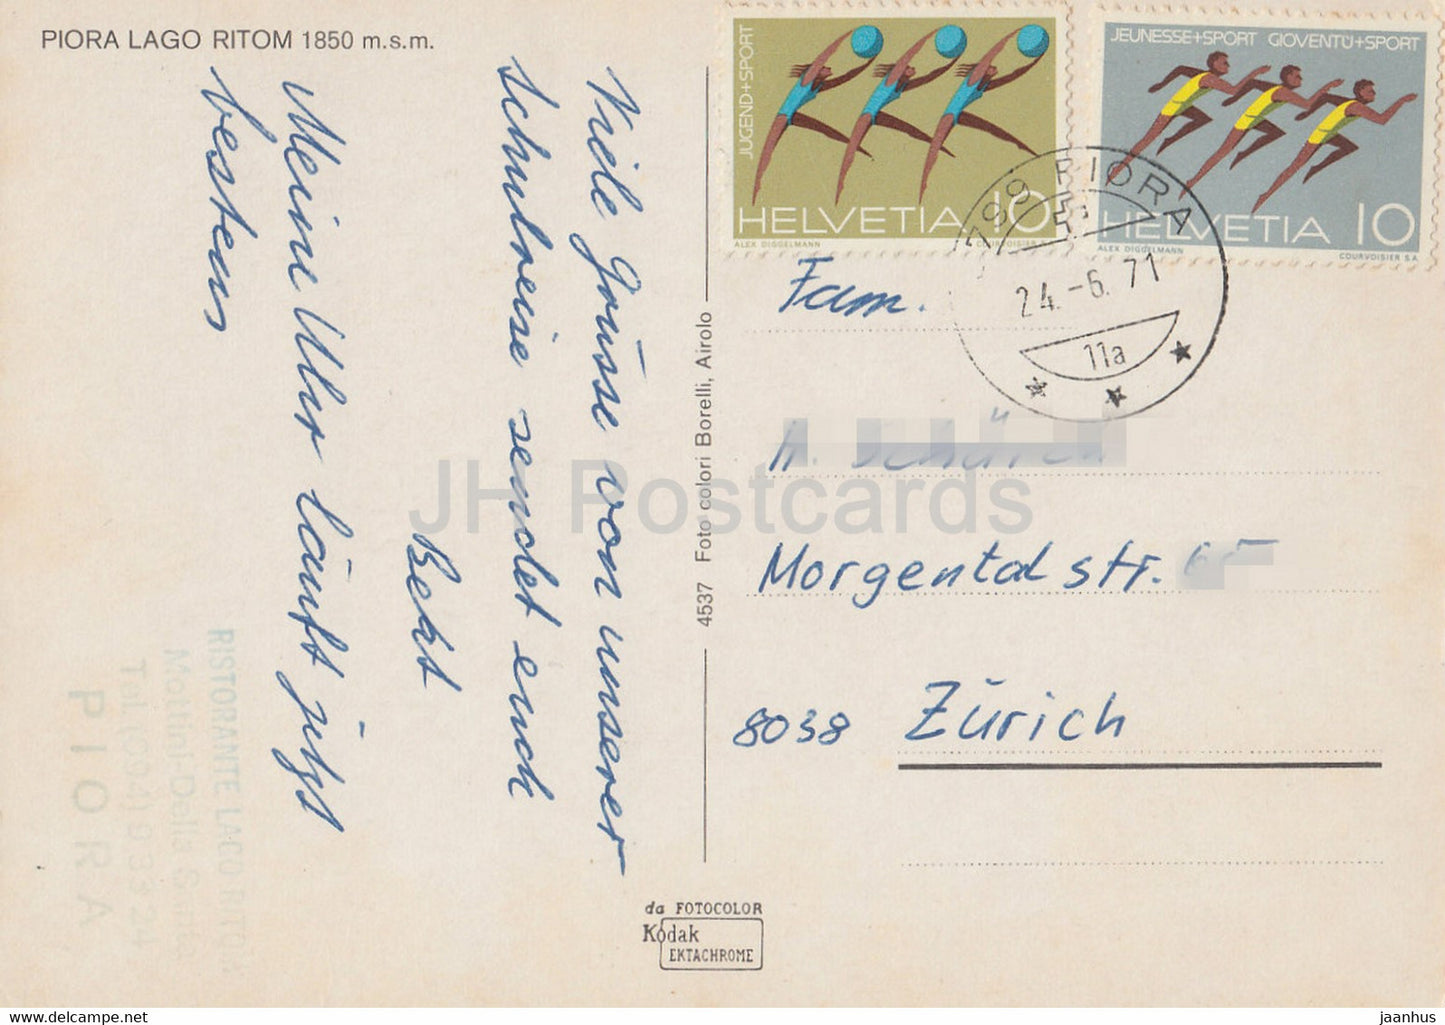 PIORA LAGO RITOM 1850 m.s.m.
Viele Grüsse von unserer
Schulreise sendet euch
Beat
Meine Uhr läuft jetzt
bestens
RISTORANTE LAGO RITOM
Mottini-Della Santa
Tel. (094) 8 33 24
PIORA
4537 Foto colori Borelli, Airolo
da FOTOCOLOR
Kodak
EKTACHROME
JUGEND+SPORT
HELVETIA 10
ALEX DIGGELMANN COURVOISIER S.A.
JEUNESSE+SPORT GIOVENTÙ+SPORT
HELVETIA 10
ALEX DIGGELMANN COURVOISIER S.A.
PIORA
24.-6.71
11a
Fam.
Morgentalstr.
8038 Zürich
JH Postcards
jaanhus